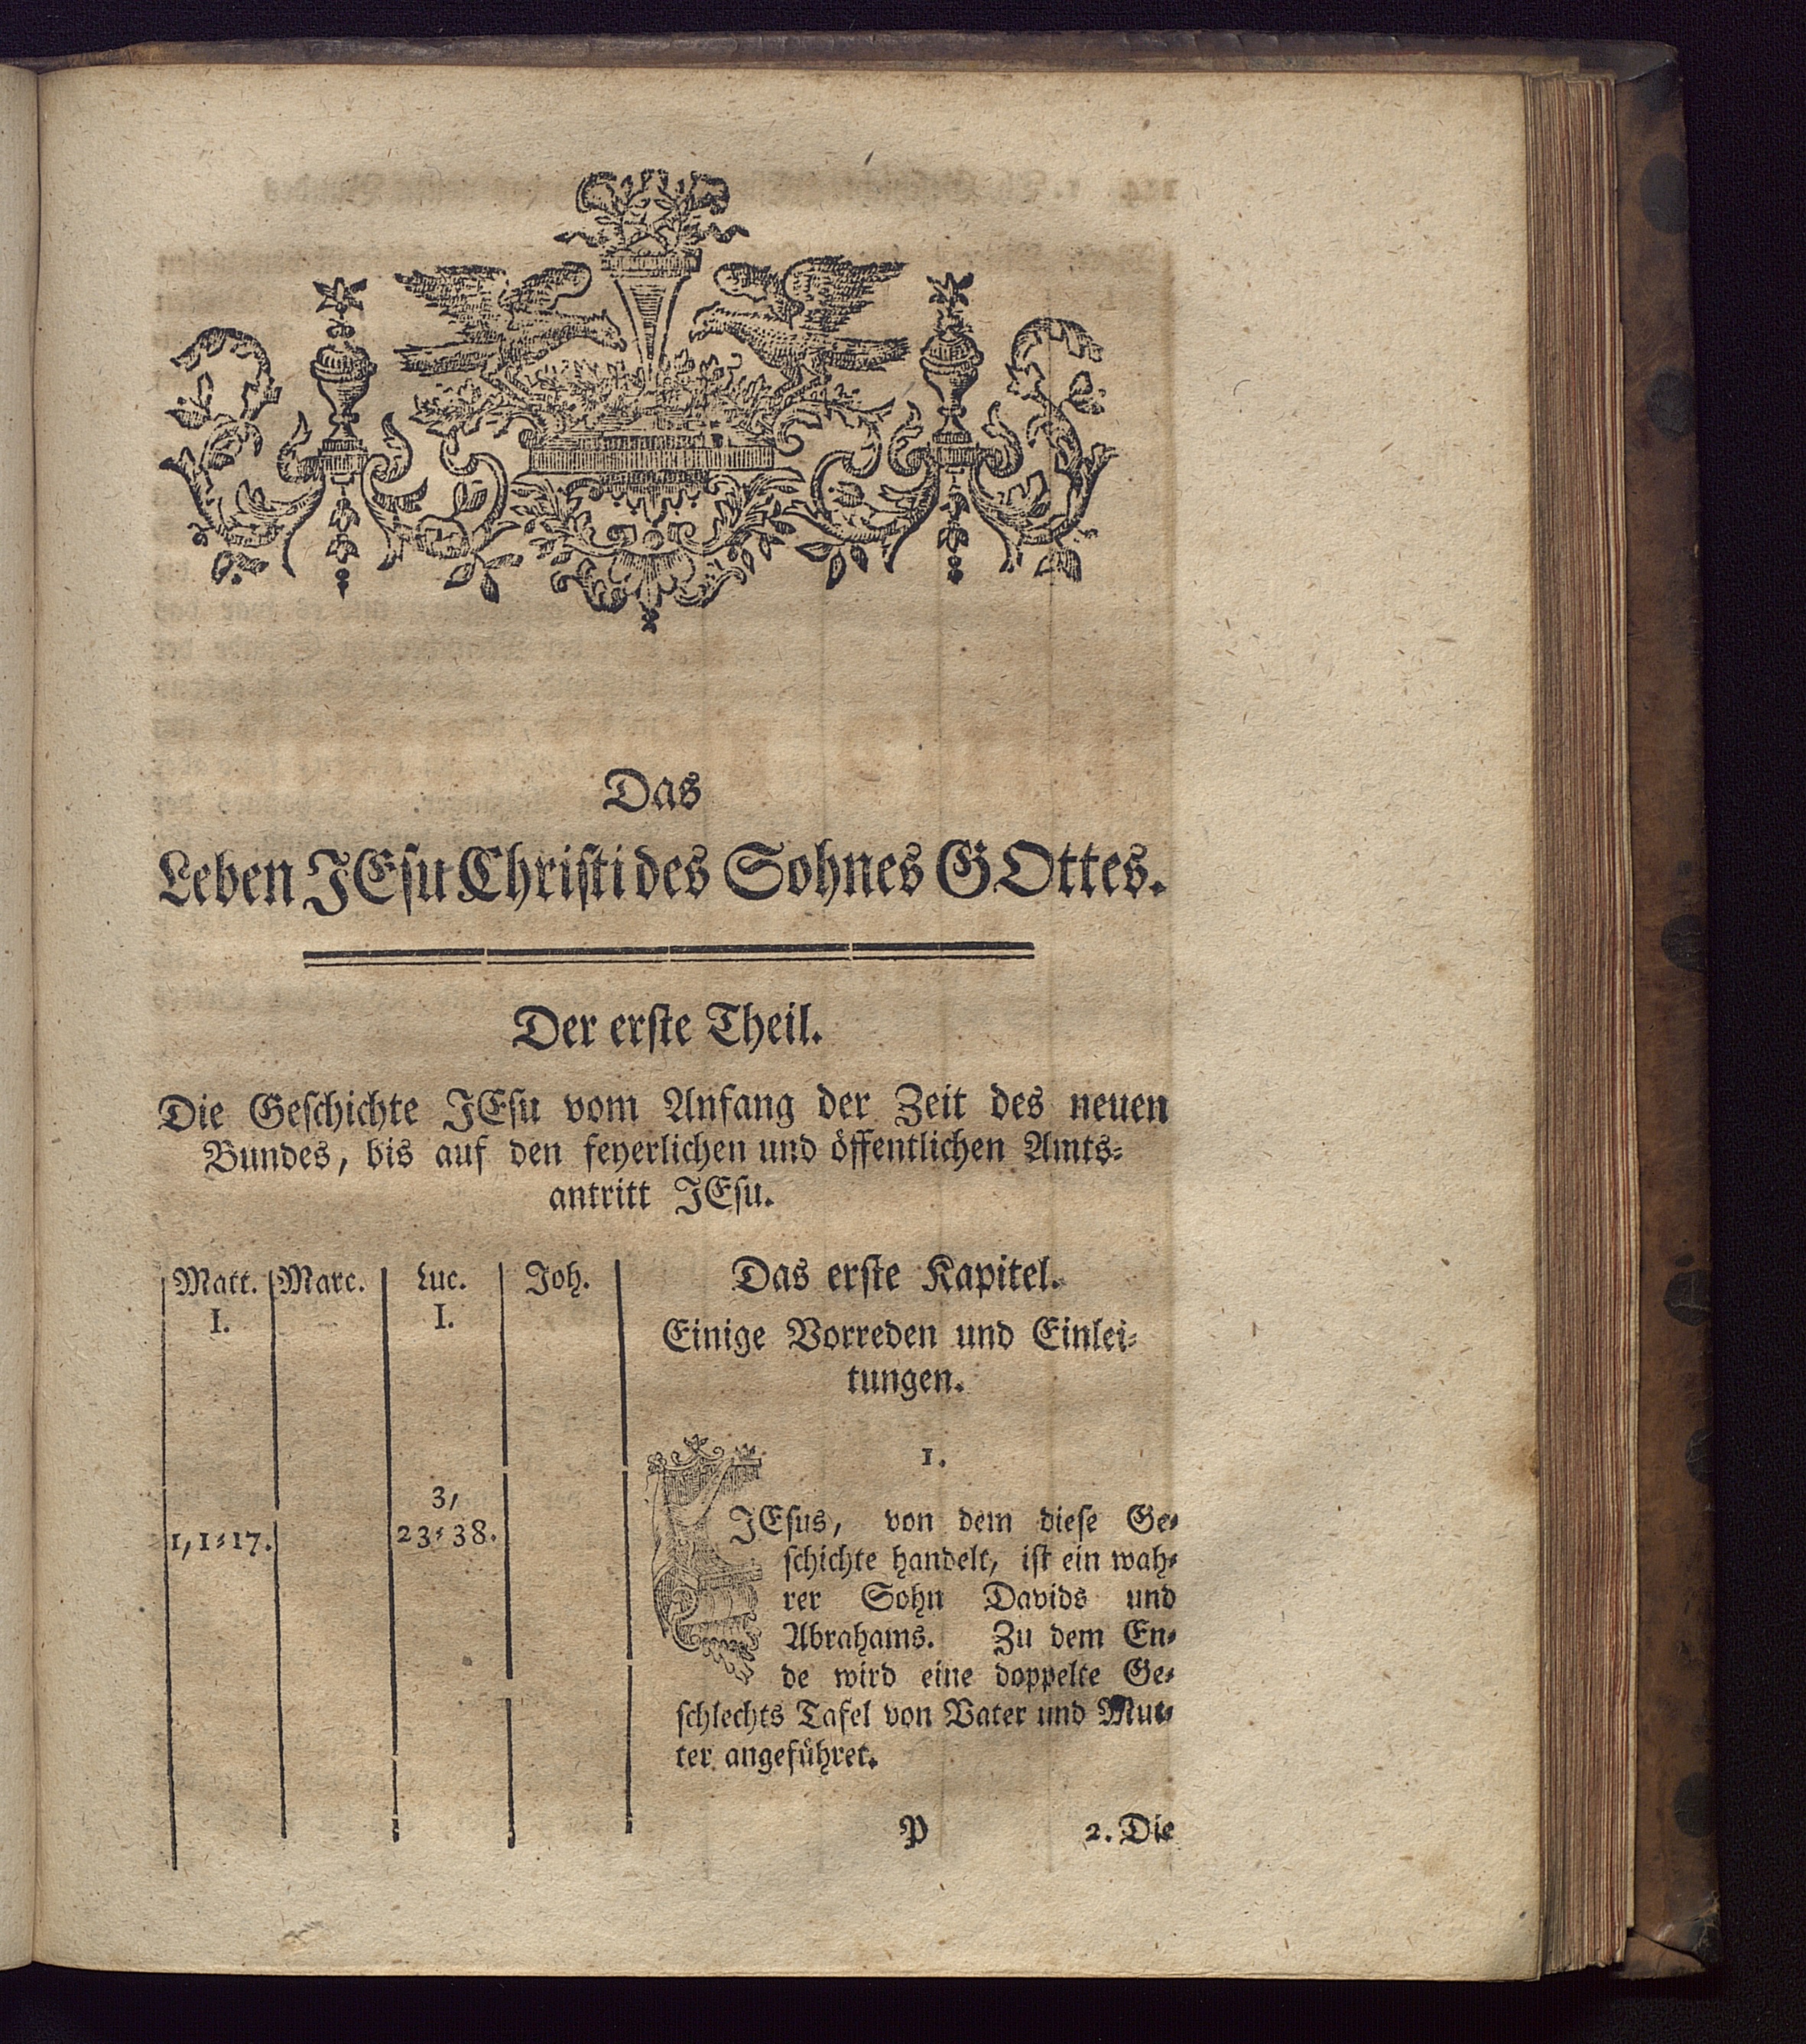 Das
Leben JEsu Christi des Sohnes GOttes.
Der erste Theil.
Die Geschichte JEsu vom Anfang der Zeit des neuen
Bundes, bis auf den feyerlichen und öffentlichen Amts-
antritt JEsu.
Matt. Marc. Luc. Joh.
I. I.
3,
1,1-17. 23-38.
Das erste Kapitel.
Einige Vorreden und Einlei-
tungen.
1.
JEsus, von dem diese Ge-
schichte handelt, ist ein wah-
rer Sohn Davids und
Abrahams. Zu dem En-
de wird eine doppelte Ge-
schlechts Tafel von Vater und Mut-
ter angeführet.
P 2. Die